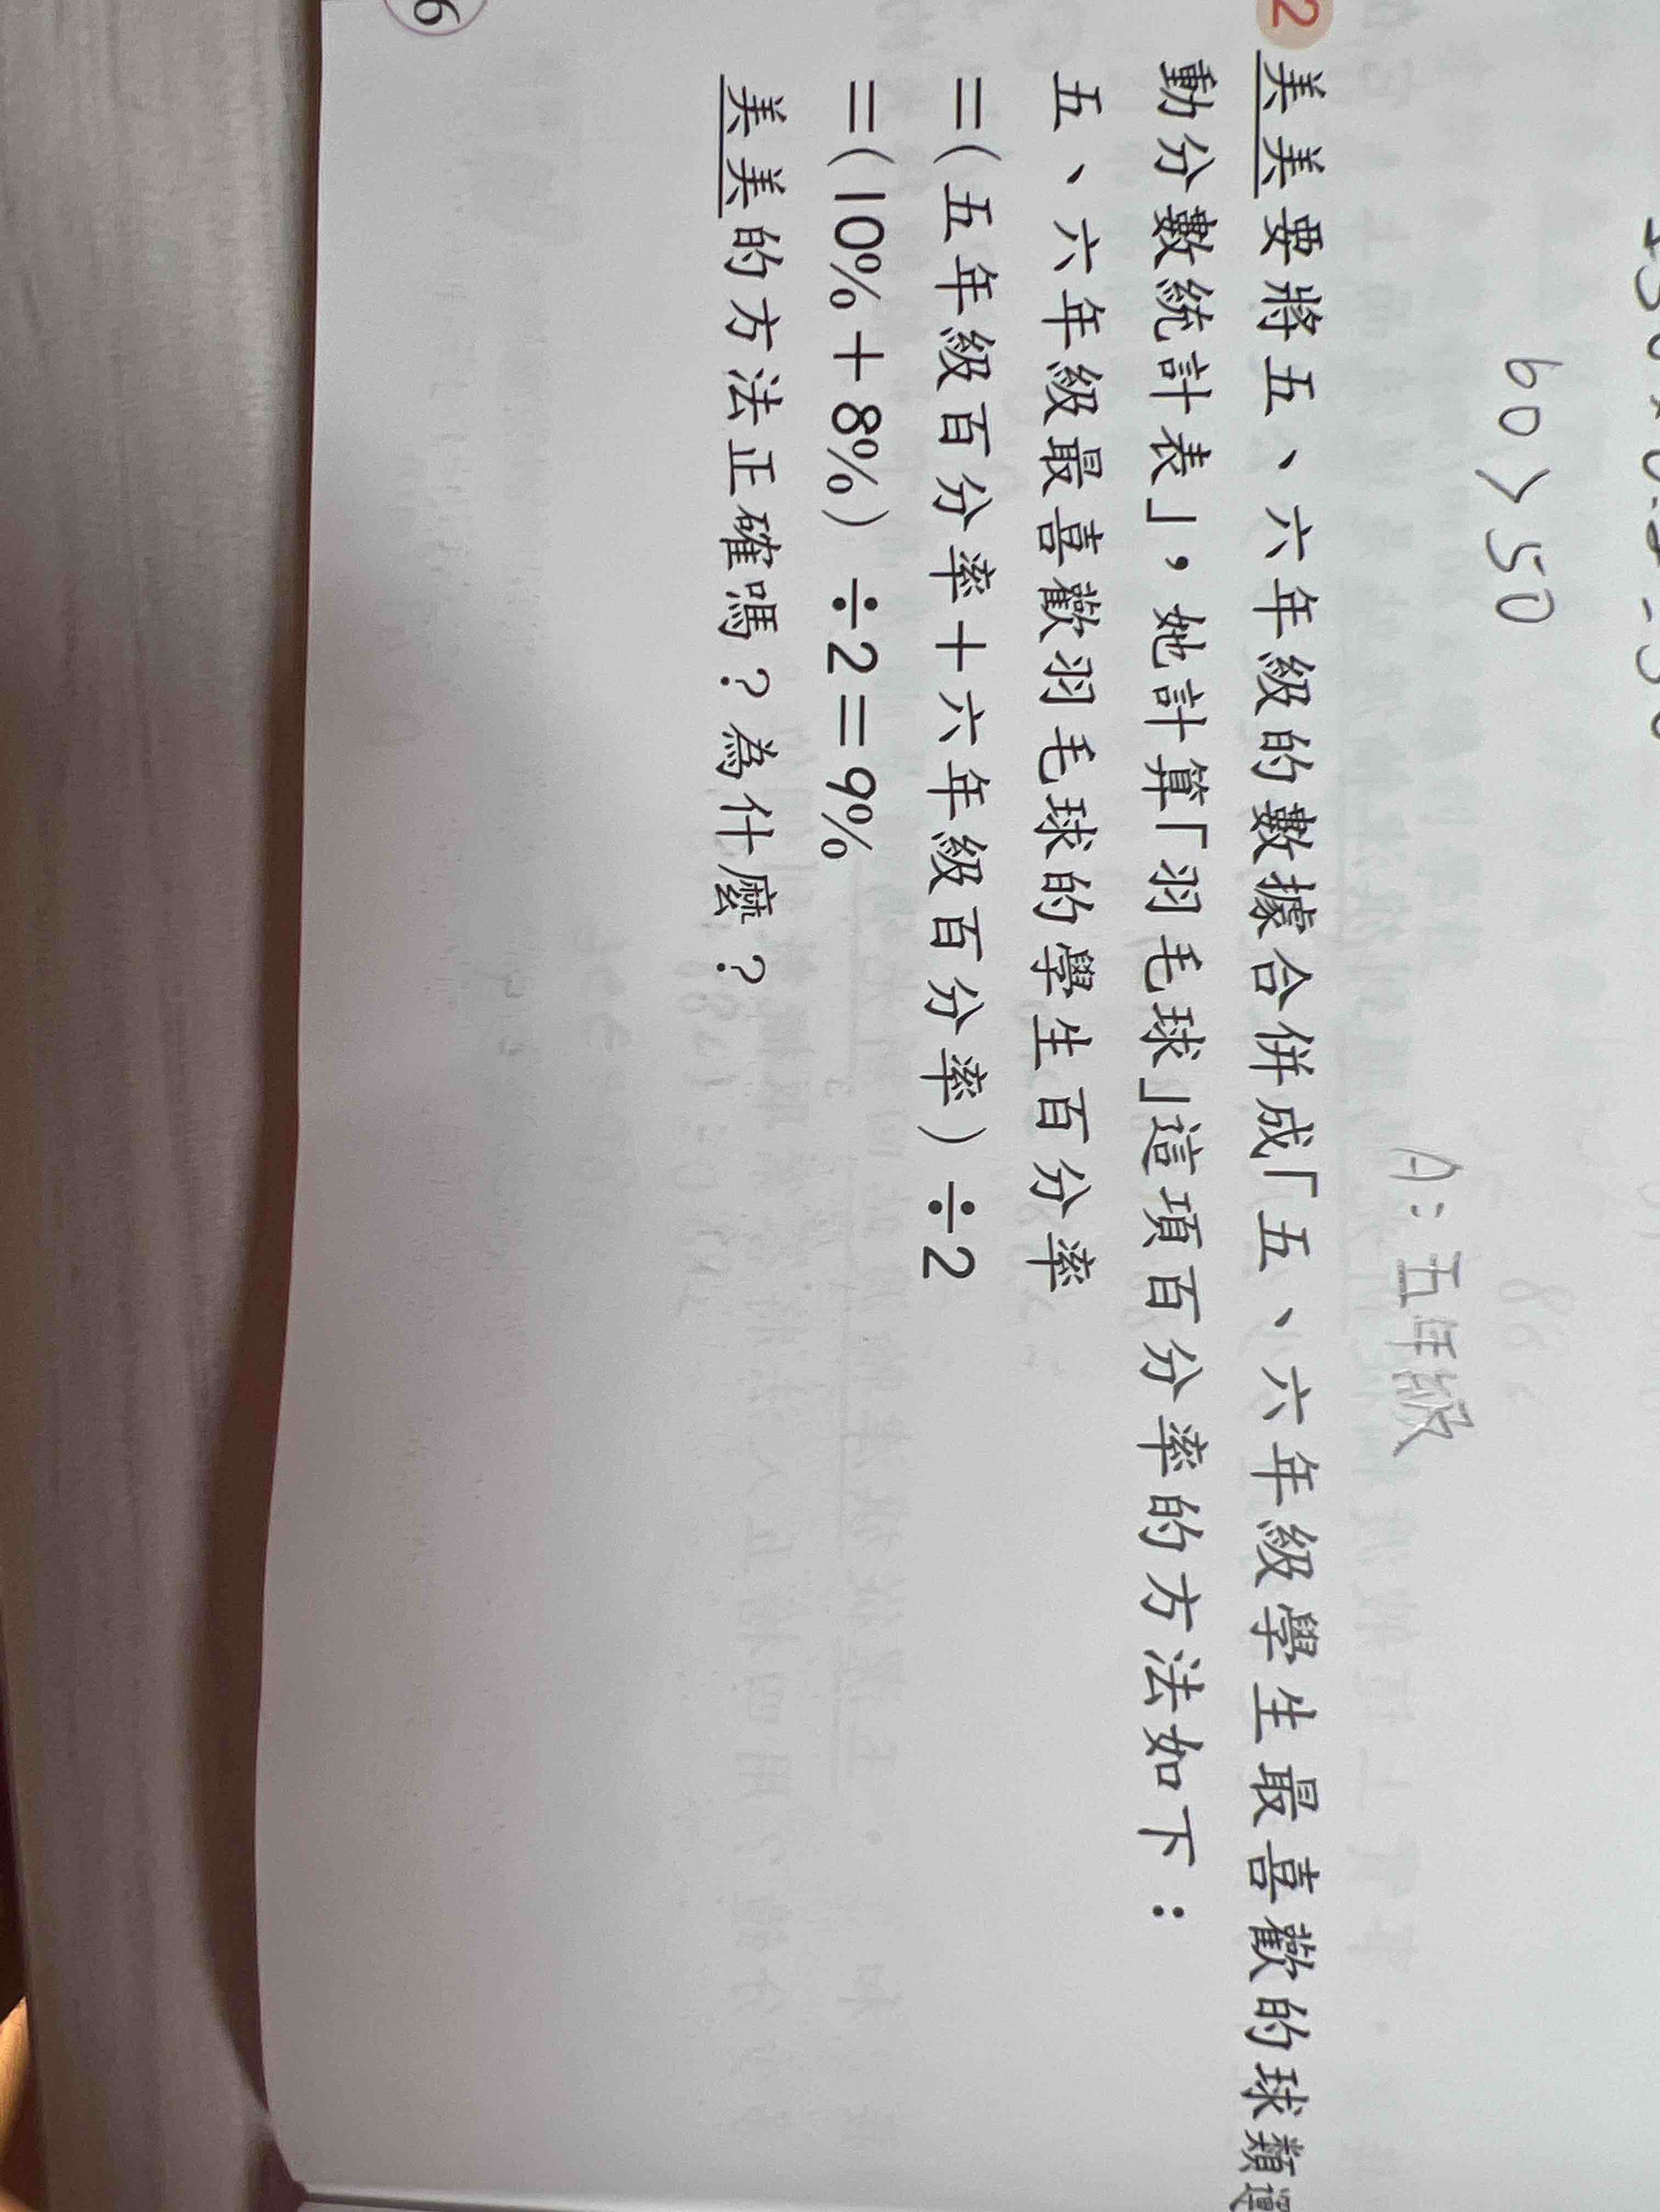 60>50
A:五年級
2 美美要將五、六年級的數據合併成「五、六年級學生最喜歡的球類運
動分數統計表」,她計算「羽毛球」這項百分率的方法如下:
五、六年級最喜歡羽毛球的學生百分率
=(五年級百分率+六年級百分率)÷2
=(10%+8%)÷2=9%
美美的方法正確嗎?為什麼?
6